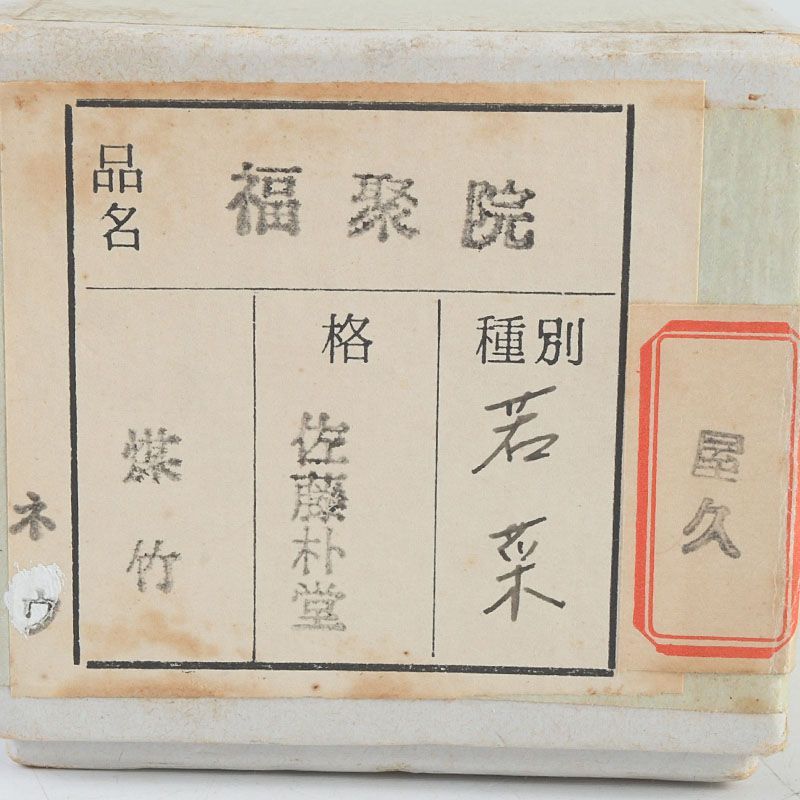 品名
福聚院
種別
若菜
格
佐藤朴堂
煤竹
ネウ
屋久